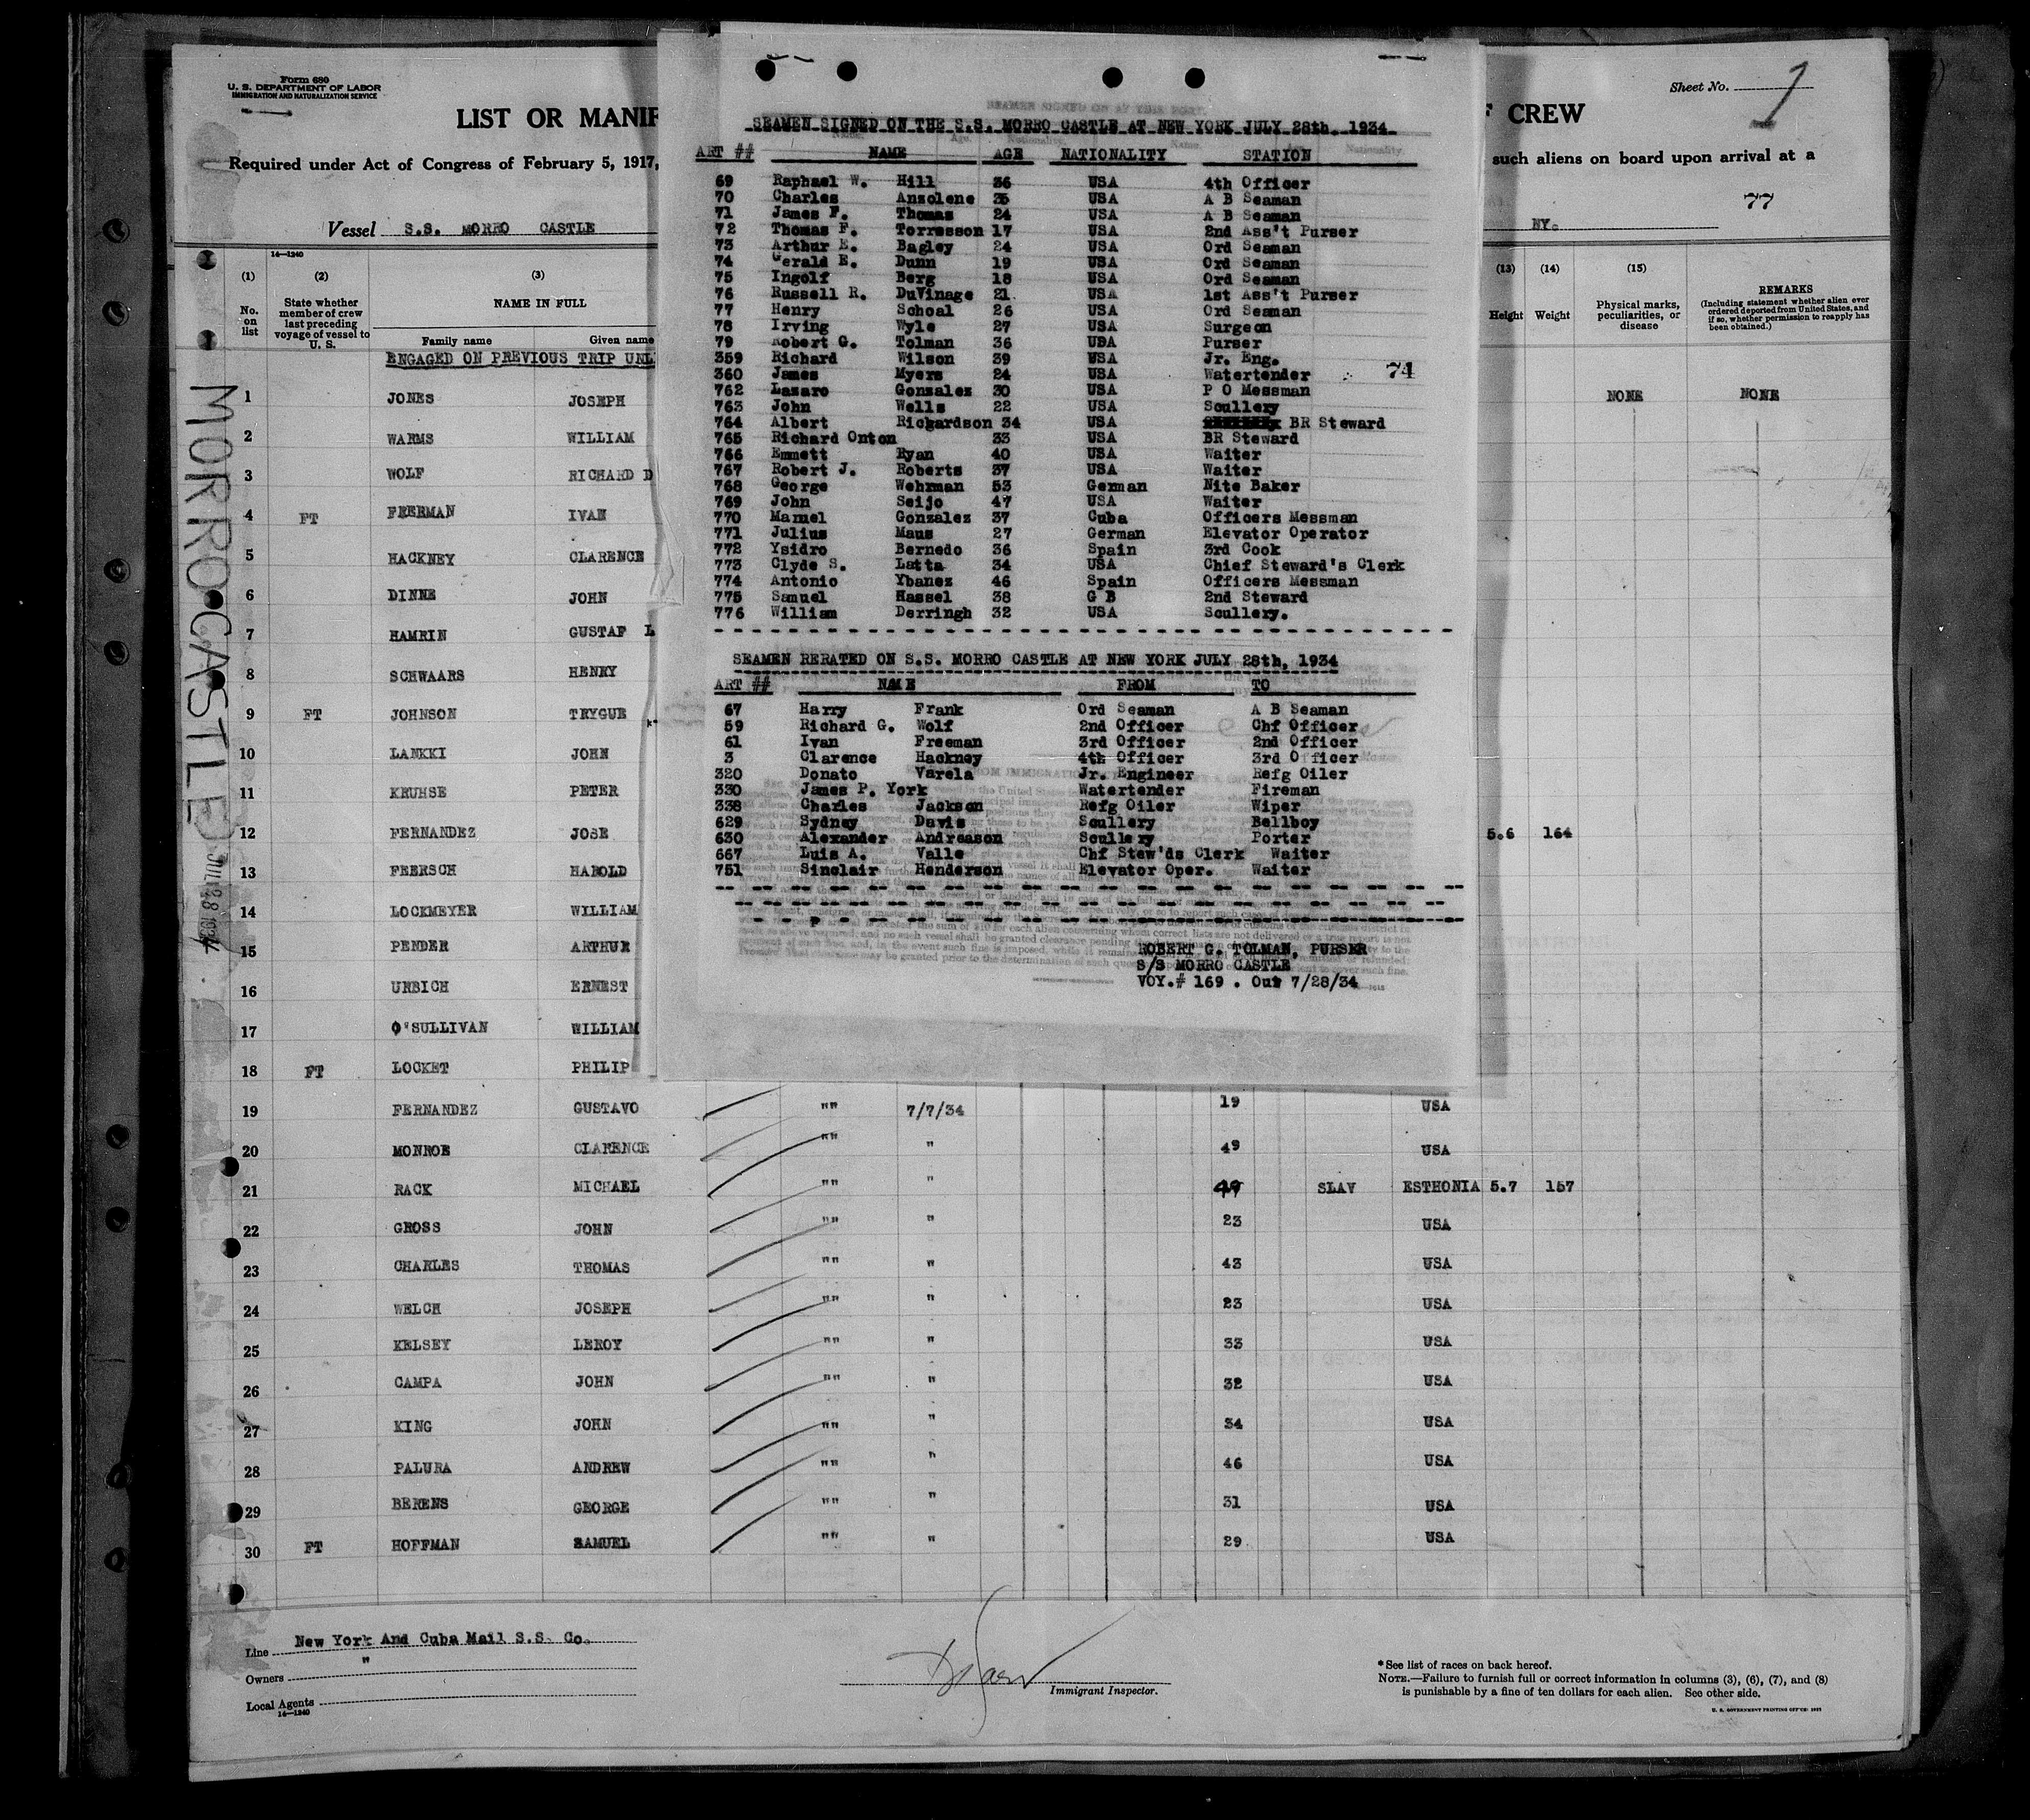 Form 680
U. S. DEPARTMENT OF LABOR
IMMIGRATION AND NATURALIZATION SERVICE
Sheet No. 1
LIST OR MANIF
F CREW
Required under Act of Congress of February 5, 1917,
such aliens on board upon arrival at a
77
Vessel S.S. MORRO CASTLE
NY.
14—1240
(1) (2) (3) (13) (14) (15)
No. on list
State whether member of crew last preceding voyage of vessel to U. S.
NAME IN FULL
Family name Given name
Height Weight
Physical marks, peculiarities, or disease
REMARKS
(Including statement whether alien ever ordered deported from United States, and if so, whether permission to reapply has been obtained.)
ENGAGED ON PREVIOUS TRIP UNL
1 JONES JOSEPH NONE NONE
2 WARMS WILLIAM
3 WOLF RICHARD D
4 FT FREEMAN IVAN
5 HACKNEY CLARENCE
6 DINNE JOHN
7 HAMRIN GUSTAF L
8 SCHWAARS HENRY
9 FT JOHNSON TRYGUE
10 LANKKI JOHN
11 KRUHSE PETER
12 FERNANDEZ JOSE 5.6 164
13 FEERSCH HAROLD
14 LOCKMEYER WILLIAM
15 PENDER ARTHUR
16 URBICH ERNEST
17 O'SULLIVAN WILLIAM
18 FT LOCKET PHILIP
19 FERNANDEZ GUSTAVO "" 7/7/34 19 USA
20 MONROE CLARENCE "" " 49 USA
21 RACK MICHAEL "" " SLAV ESTHONIA 5.7 157
22 GROSS JOHN "" " 23 USA
23 CHARLES THOMAS "" " 43 USA
24 WELCH JOSEPH "" " 23 USA
25 KELSEY LEROY "" " 33 USA
26 CAMPA JOHN "" " 32 USA
27 KING JOHN "" " 34 USA
28 PALURA ANDREW "" " 46 USA
29 BERENS GEORGE "" " 31 USA
30 FT HOFFMAN SAMUEL "" " 29 USA
MORRO CASTLE
JUL 28 1934
SEAMEN SIGNED ON THE S.S. MORRO CASTLE AT NEW YORK JULY 28th, 1934
ART ## NAME AGE NATIONALITY STATION
69 Raphael W. Hill 36 USA 4th Officer
70 Charles Anzolene 35 USA A B Seaman
71 James F. Thomas 24 USA A B Seaman
72 Thomas F. Torresson 17 USA 2nd Ass't Purser
73 Arthur E. Bagley 24 USA Ord Seaman
74 Gerald E. Dunn 19 USA Ord Seaman
75 Ingolf Berg 18 USA Ord Seaman
76 Russell R. DuVinage 21 USA 1st Ass't Purser
77 Henry Schoal 26 USA Ord Seaman
78 Irving Wyle 27 USA Surgeon
79 Robert G. Tolman 36 USA Purser
359 Richard Wilson 39 USA Jr. Eng.
360 James Myers 24 USA Watertender 74
762 Lazaro Gonzalez 30 USA P O Messman
763 John Wells 22 USA Scullery
764 Albert Richardson 34 USA BR Steward
765 Richard Onton 33 USA BR Steward
766 Emmett Ryan 40 USA Waiter
767 Robert J. Roberts 37 USA Waiter
768 George Wehrman 53 German Nite Baker
769 John Seijo 47 USA Waiter
770 Manuel Gonzalez 37 Cuba Officers Messman
771 Julius Maus 27 German Elevator Operator
772 Ysidro Bernedo 36 Spain 3rd Cook
773 Clyde S. Latta 34 USA Chief Steward's Clerk
774 Antonio Ybanez 46 Spain Officers Messman
775 Samuel Hassel 38 G B 2nd Steward
776 William Derringh 32 USA Scullery.
SEAMEN RERATED ON S.S. MORRO CASTLE AT NEW YORK JULY 28th, 1934
ART ## NAME FROM TO
67 Harry Frank Ord Seaman A B Seaman
59 Richard G. Wolf 2nd Officer Chf Officer
61 Ivan Freeman 3rd Officer 2nd Officer
3 Clarence Hackney 4th Officer 3rd Officer
320 Donato Varela Jr. Engineer Refg Oiler
330 James P. York Watertender Fireman
338 Charles Jackson Refg Oiler Wiper
629 Sydney Davis Scullery Bellboy
630 Alexander Andreason Scullery Porter
667 Luis A. Valle Chf Stew'ds Clerk Waiter
751 Sinclair Henderson Elevator Oper. Waiter
ROBERT G. TOLMAN, PURSER
S/S MORRO CASTLE
VOY.# 169 . Out 7/28/34
Line New York And Cuba Mail S.S. Co.
Owners "
Local Agents
14—1240
Immigrant Inspector.
*See list of races on back hereof.
NOTE.—Failure to furnish full or correct information in columns (3), (6), (7), and (8)
is punishable by a fine of ten dollars for each alien. See other side.
U. S. GOVERNMENT PRINTING OFFICE: 1933